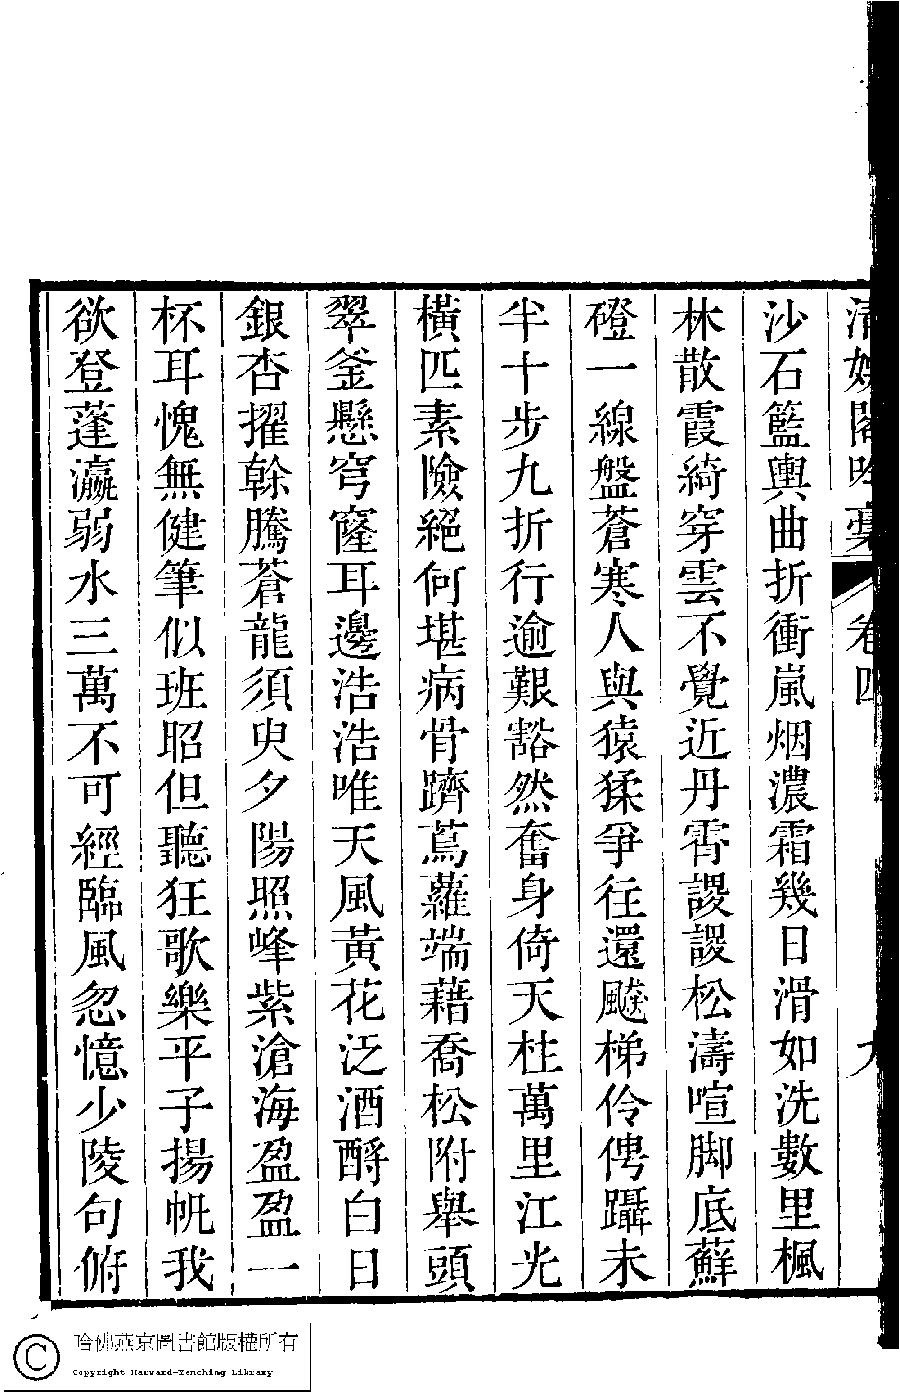 卷四
沙石籃輿曲折衝嵐烟濃霜幾日滑如洗數里楓
林散霞綺穿雲不覺近丹霄謖謖松濤喧脚底蘚
磴一線盤蒼寒人與猿猱爭往還飈梯伶俜躡未
半十步九折行逾艱豁然奮身倚天柱萬里江光
橫匹素險絕何堪病骨躋蔦蘿端藉喬松附舉頭
翠釜懸穹窿耳邊浩浩唯天風黃花泛酒酹白日
銀杏擢榦騰蒼龍須臾夕陽照峰紫滄海盈盈一
杯耳愧無健筆似班昭但聽狂歌樂平子揚帆我
欲登蓬瀛弱水三萬不可經臨風忽憶少陵句俯
哈佛燕京圖書館版權所有
Copyright Harvard-Yenching Library